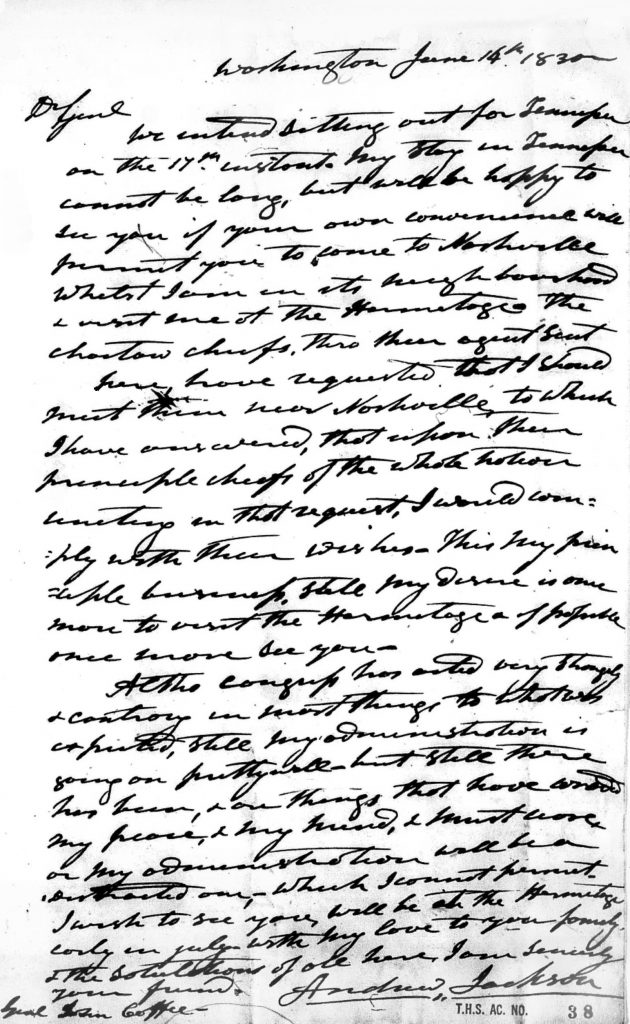 Washington June 14th 1830
Dr Genl
We intend sitting out for Tennessee
on the 17th instant. My stay in Tennessee
cannot be long, but will be happy to
see you if your own convenience will
permit you to come to Nashville
whilst I am in its neighbourhood
& visit me at the Hermitage. The
choctaw chiefs, thro their agent sent
here, have requested that I should
meet them near Nashville, to which
I have answered, that upon their
principle chiefs of the whole nation
uniting in that request, I would com=
=ply with their wishes. This my prin
=ciple business, still my desire is once
more to visit the Hermitage & if possible
once more see you—
Altho congress has acted very strangely
& contrary in most things, to what was
expected, still my administration is
going on pretty well—but still there
has been, & are things, that have
my peace, & my mind, & must cease
or my administration will be a
distracted one,— which I cannot permit.
I wish to see you, will be at the Hermitage
early in july—with my love to you family
& the salutations of all here, I am sincerely
your friend.
Andrew Jackson
Genl John Coffee—
T.H.S. AC. NO. 38